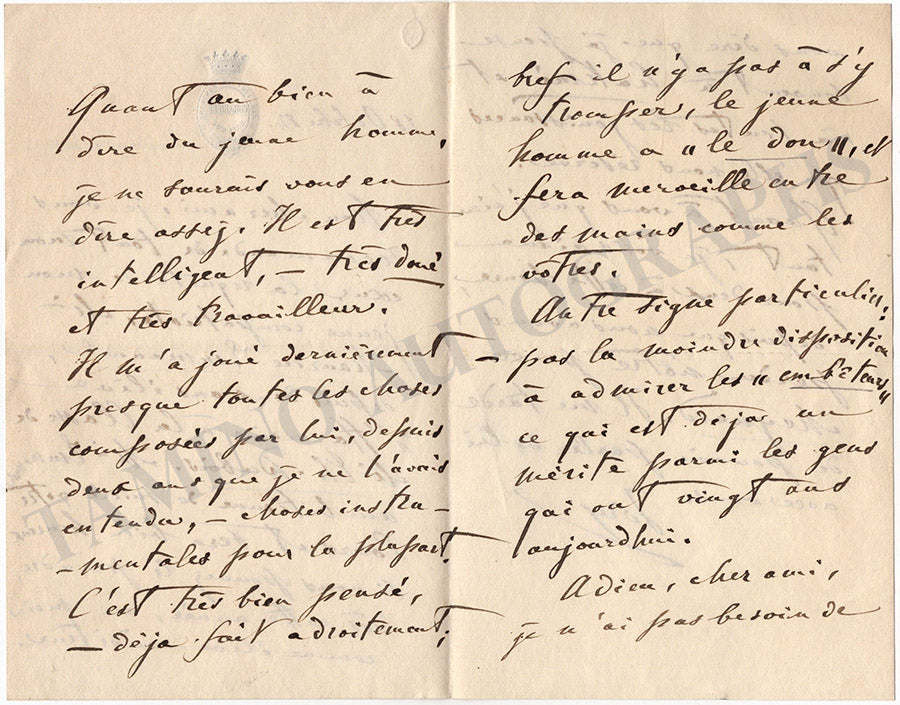 Quant au bien à
dire du jeune homme,
je ne saurais vous en
dire assez. Il est très
intelligent, — très doué
et très travailleur.
Il m'a joué dernièrement
presque toutes les choses
composées par lui, depuis
deux ans que je ne l'avais
entendu, — choses instru-
-mentales pour la plupart.
C'est très bien pensé,
— déja fait adroitement;
bref il n'y a pas à s'y
tromper, le jeune
homme a "le don", et
fera merveille entre
des mains comme les
votres.
Autre signe particulier:
— pas la moindre disposition
à admirer les "embêteurs"
ce qui est déja un
mérite parmi les gens
qui ont vingt ans
aujourdhui.
Adieu, cher ami,
je n'ai pas besoin de
TAMINO AUTOGRAPHS